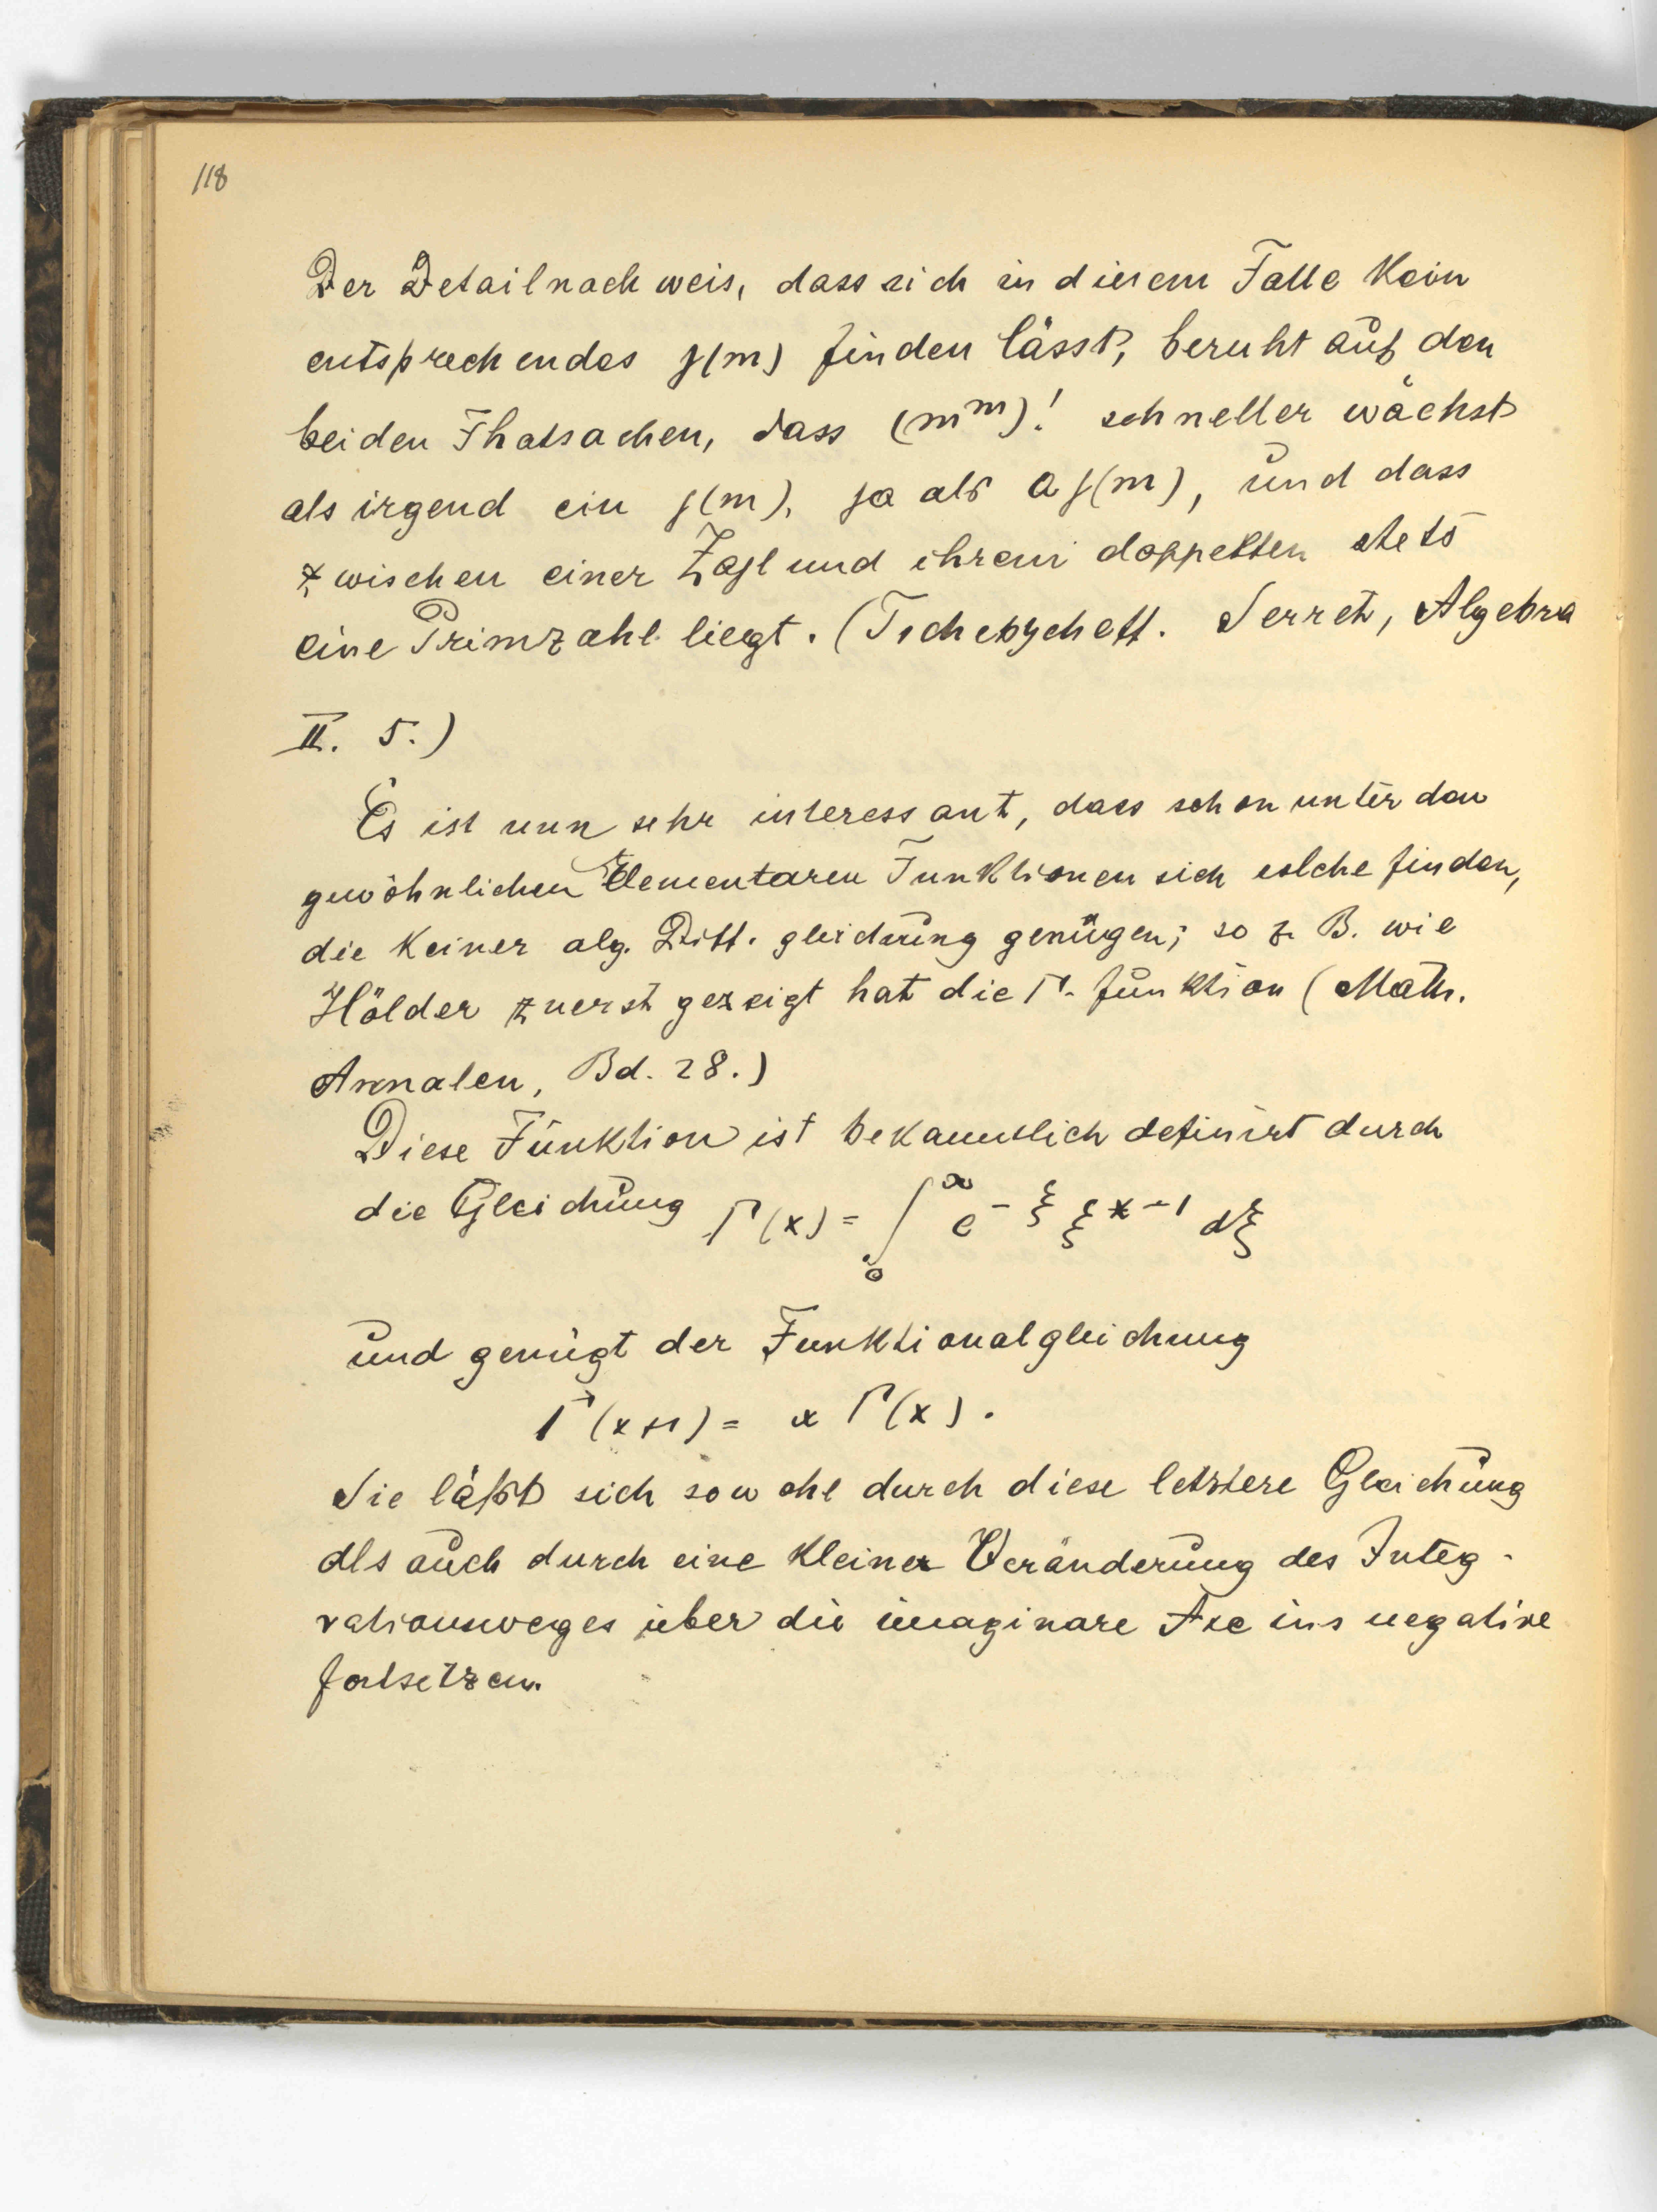 118
Der Detailnachweis, dass sich in diesem Falle kein
entsprechendes f(m) finden lässt, beruht auf den
beiden Thatsachen, dass (m^m)! schneller wächst
als irgend ein f(m), ja als a f(m), und dass
zwischen einer Zahl und ihrem doppelten stets
eine Primzahl liegt. (Tschebycheff. Serret, Algebra
II. 5.)
Es ist nun sehr interessant, dass schon unter den
gewöhnlichen Elementaren Funktionen sich solche finden,
die keiner alg. Diff. gleichung genügen; so z. B. wie
Hölder zuerst gezeigt hat die Γ-funktion (Math.
Annalen, Bd. 28.)
Diese Funktion ist bekanntlich definirt durch
die Gleichung Γ(x) = ∫₀^∞ e^{-ξ} ξ^{x-1} dξ
und genügt der Funktionalgleichung
Γ(x+1) = x Γ(x).
Sie läßt sich sowohl durch diese letztere Gleichung
als auch durch eine kleine Veränderung des Integ-
rationsweges über die imaginäre Axe ins negative
fortsetzen.